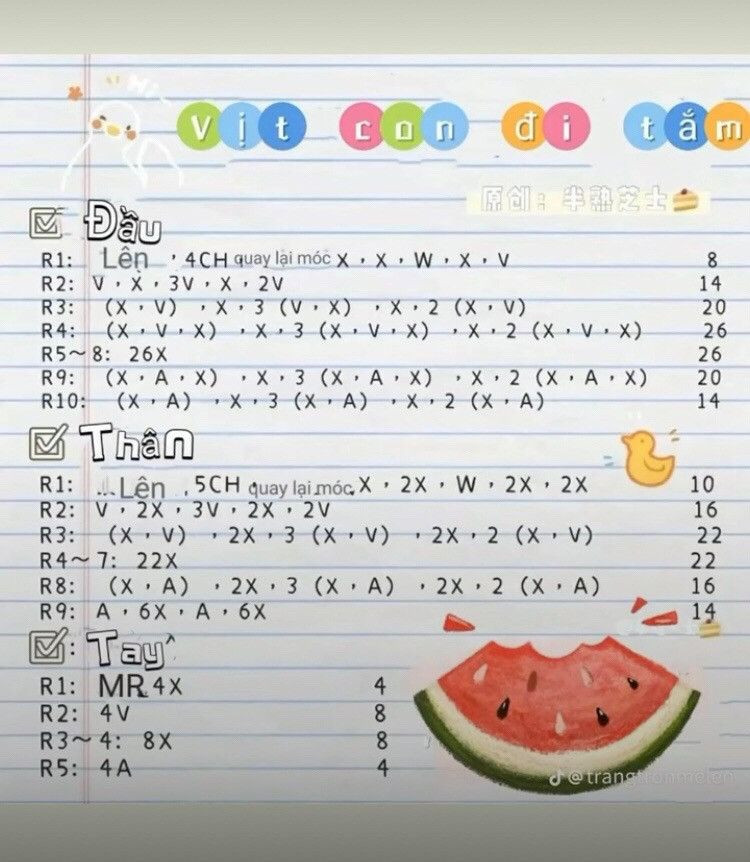 Vịt con đi tắm
原创：半熟芝士
Đầu
R1: Lên , 4CH quay lại móc X , X , W , X , V 8
R2: V , X , 3V , X , 2V 14
R3: (X , V) , X , 3 (V , X) , X , 2 (X , V) 20
R4: (X , V , X) , X , 3 (X , V , X) , X , 2 (X , V , X) 26
R5~8: 26X 26
R9: (X , A , X) , X , 3 (X , A , X) , X , 2 (X , A , X) 20
R10: (X , A) , X , 3 (X , A) , X , 2 (X , A) 14
Thân
R1: ...Lên , 5CH quay lại móc X , 2X , W , 2X , 2X 10
R2: V , 2X , 3V , 2X , 2V 16
R3: (X , V) , 2X , 3 (X , V) , 2X , 2 (X , V) 22
R4~7: 22X 22
R8: (X , A) , 2X , 3 (X , A) , 2X , 2 (X , A) 16
R9: A , 6X , A , 6X 14
: Tay^
R1: MR 4X 4
R2: 4V 8
R3~4: 8X 8
R5: 4A 4